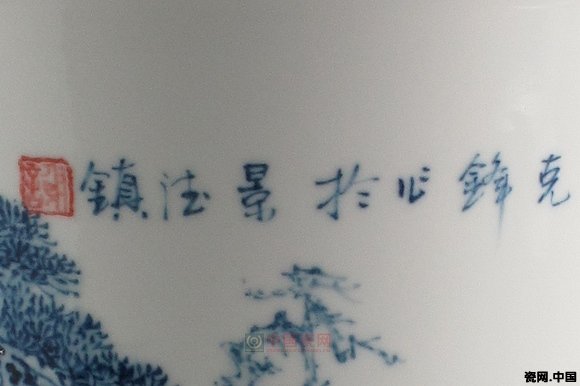 克鋒作於景德鎮
中国瓷网
瓷网.中国